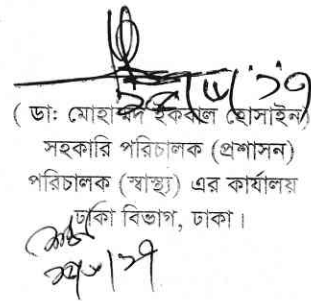 ( ডাঃ মোহাম্মদ ইকবাল হোসাইন)
সহকারি পরিচালক (প্রশাসন)
পরিচালক (স্বাস্থ্য) এর কার্যালয়
ঢাকা বিভাগ, ঢাকা।